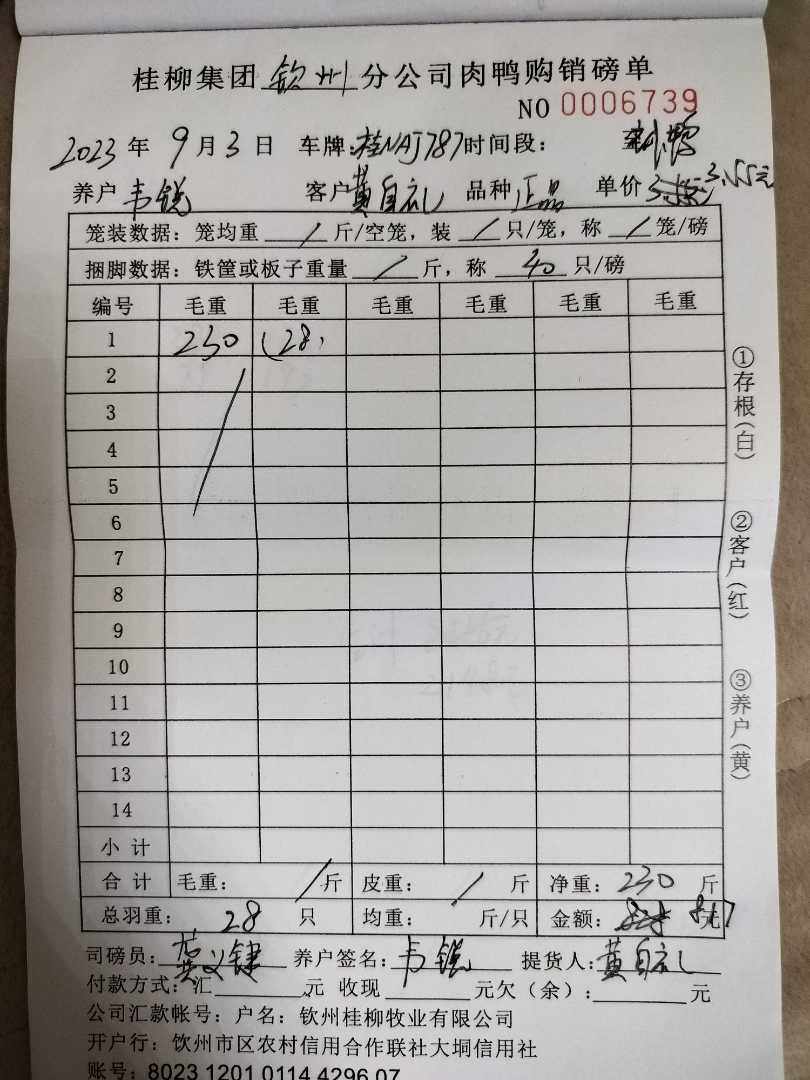 桂柳集团 钦州 分公司肉鸭购销磅单
NO 0006739
2023 年 9 月 3 日 车牌:桂NAJ787 时间段:
养户 韦锐 客户 黄自礼 品种 正品 单价 3.55元
笼装数据: 笼均重 / 斤/空笼, 装 / 只/笼, 称 / 笼/磅
捆脚数据: 铁筐或板子重量 / 斤, 称 40 只/磅
编号 毛重 毛重 毛重 毛重 毛重 毛重
1 230 (28)
2
3
4
5
6
7
8
9
10
11
12
13
14
小计
合计 毛重: / 斤 皮重: / 斤 净重: 230 斤
总羽重: 28 只 均重: 斤/只 金额: 817 元
司磅员: 义键 养户签名: 韦锐 提货人: 黄自礼
付款方式: 汇 元 收现 元欠(余): 元
公司汇款帐号: 户名: 钦州桂柳牧业有限公司
开户行: 钦州市区农村信用合作联社大垌信用社
账号: 8023 1201 0114 4296 07
①存根(白)
②客户(红)
③养户(黄)